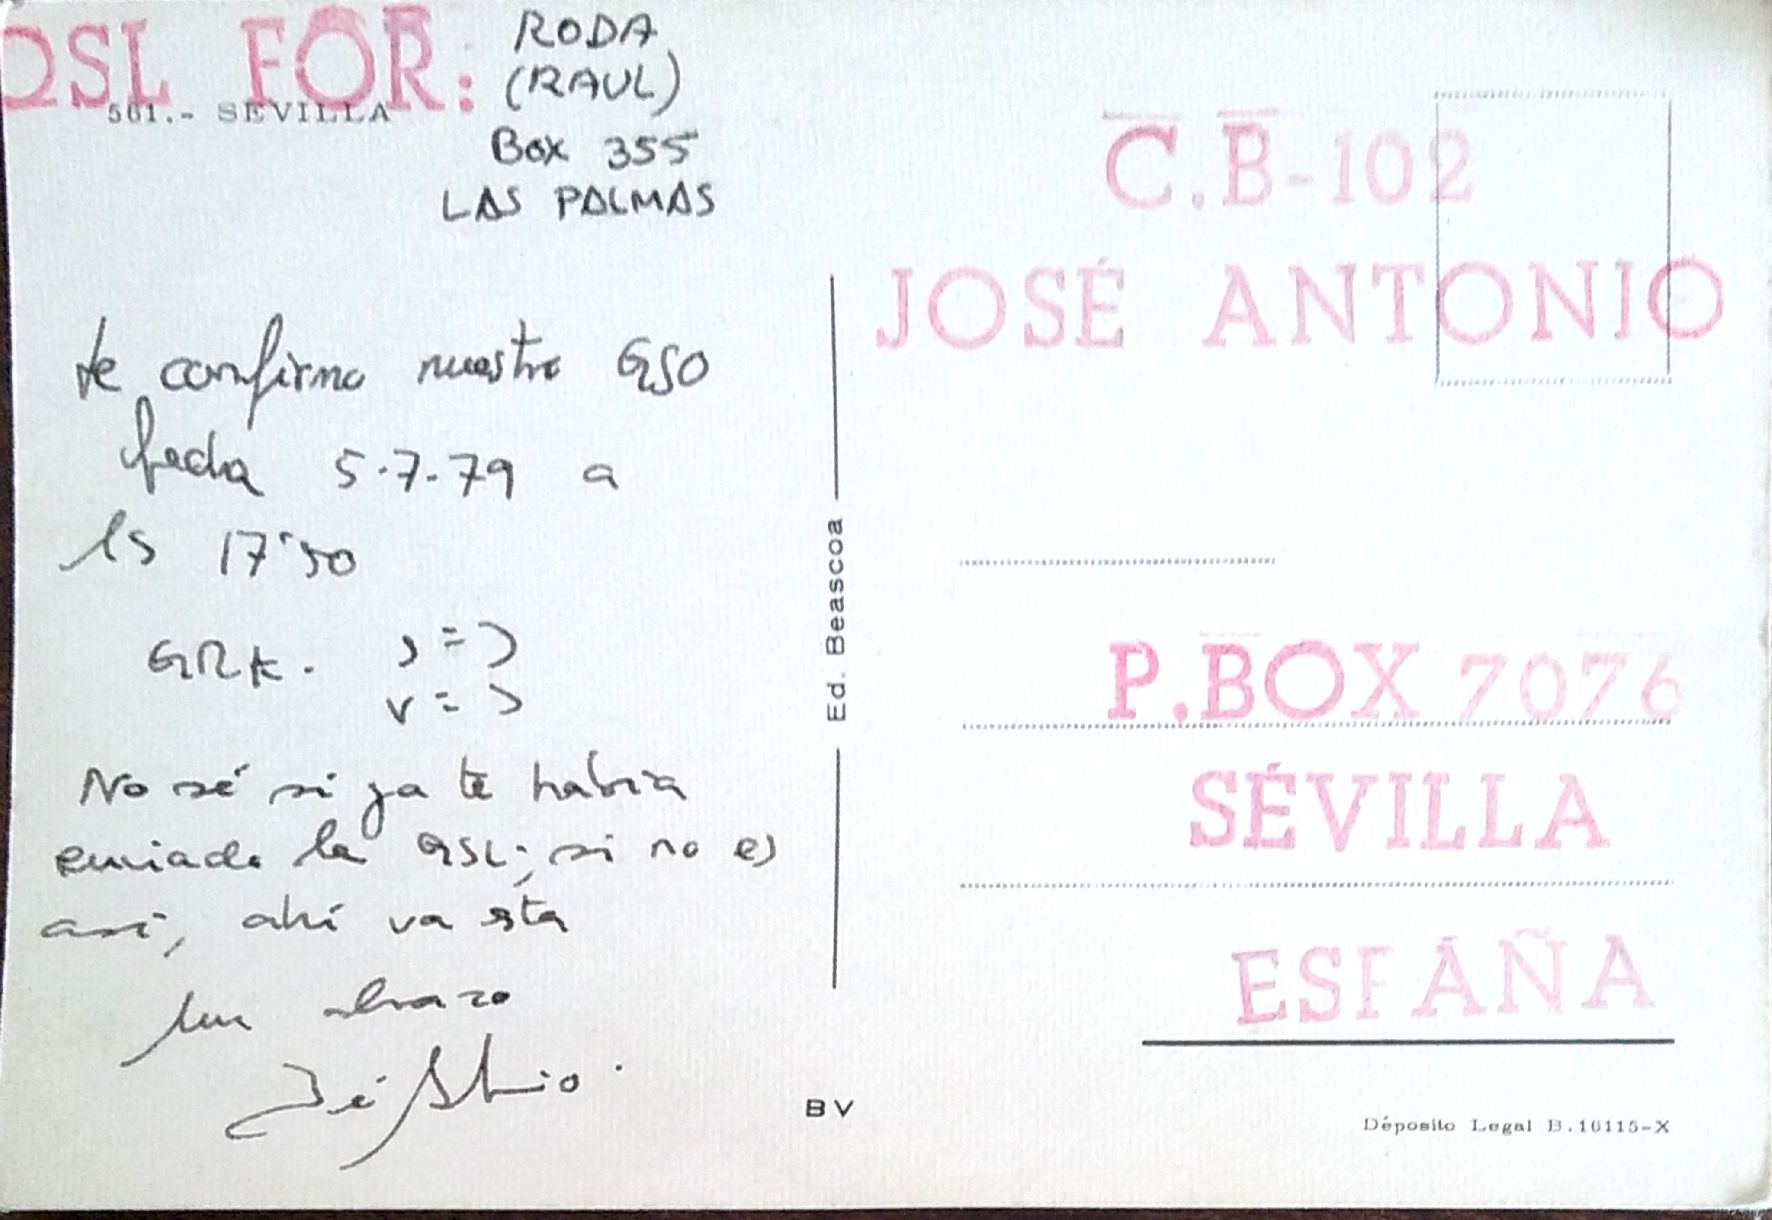 QSL FOR:
RODA
(RAUL)
Box 355
LAS PALMAS
561.- SEVILLA
te confirmo nuestro QSO
fecha 5.7.79 a
ls 17'50
QRK. s = 5
v = 5
No sé si ya te había
enviado la QSL; si no es
así, ahí va esta
Un abrazo
José Antonio.
Ed. Beascoa
BV
C.B-102
JOSÉ ANTONIO
P.BOX 7076
SÉVILLA
ESPAÑA
Déposito Legal B.16115-X